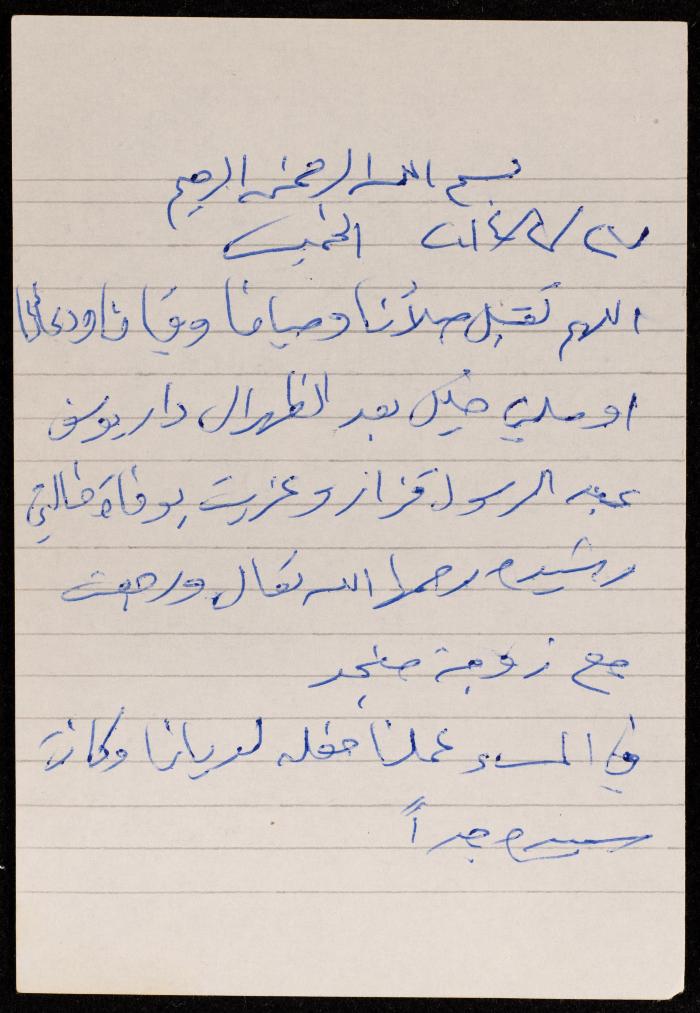 بسم الله الرحمن الرحيم
٢٨/٨/٢٠١٤ الخميس
اللهم تقبل صلاتنا وصيامنا وقيامنا ودعائنا
اوصلني خليل بعد الظهر ال دار يوسف
عبد الرسول قزاز وعزيت بوفاة خالتي
رشيده رحمها الله تعال ورجعت
مع زوجة
في المسء عملنا حفله لوريانا وكانة
سعيده جداً